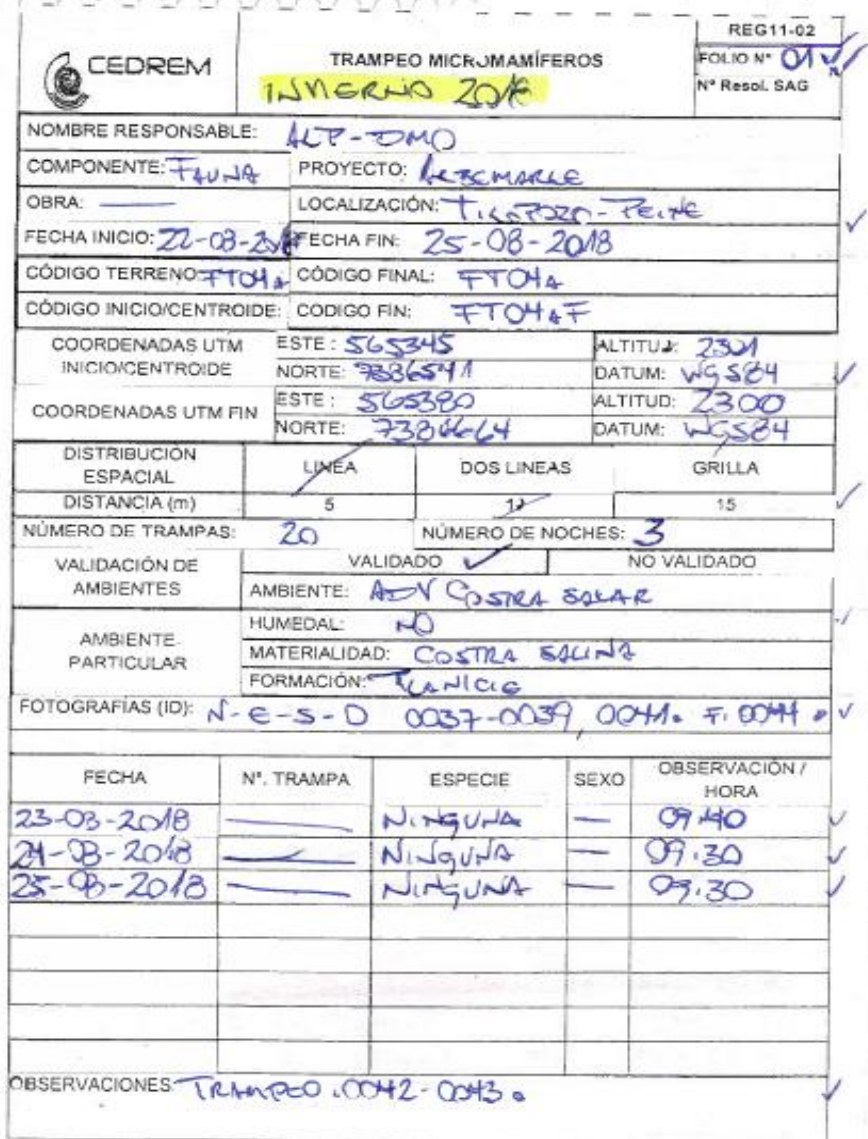 REG11-02
CEDREM
TRAMPEO MICROMAMÍFEROS
FOLIO N° 01
INVIERNO 2018
N° Resol. SAG
NOMBRE RESPONSABLE: ALP-DMO
COMPONENTE: FAUNA PROYECTO: ALBEMARLE
OBRA: — LOCALIZACIÓN: TILOPOZO-PEINE
FECHA INICIO: 22-08-2018 FECHA FIN: 25-08-2018
CÓDIGO TERRENO: FT04A CÓDIGO FINAL: FT04A
CÓDIGO INICIO/CENTROIDE: CODIGO FIN: FT04AF
COORDENADAS UTM INICIO/CENTROIDE ESTE: 565345 ALTITUD: 2301
NORTE: 7386541 DATUM: WGS84
COORDENADAS UTM FIN ESTE: 565380 ALTITUD: 2300
NORTE: 7386664 DATUM: WGS84
DISTRIBUCIÓN ESPACIAL LINEA DOS LINEAS GRILLA
DISTANCIA (m) 5 15
NÚMERO DE TRAMPAS: 20 NÚMERO DE NOCHES: 3
VALIDACIÓN DE AMBIENTES VALIDADO NO VALIDADO
AMBIENTE: ADV COSTRA SALAR
AMBIENTE PARTICULAR HUMEDAL: NO
MATERIALIDAD: COSTRA SALINA
FORMACIÓN: PLANICIE
FOTOGRAFÍAS (ID): N-E-S-O 0037-0039, 0041. F. 0044
FECHA N°. TRAMPA ESPECIE SEXO OBSERVACIÓN / HORA
23-08-2018 — NINGUNA — 09:40
24-08-2018 — NINGUNA — 09:30
25-08-2018 — NINGUNA — 09:30
OBSERVACIONES: TRAMPEO. 0042-0043.